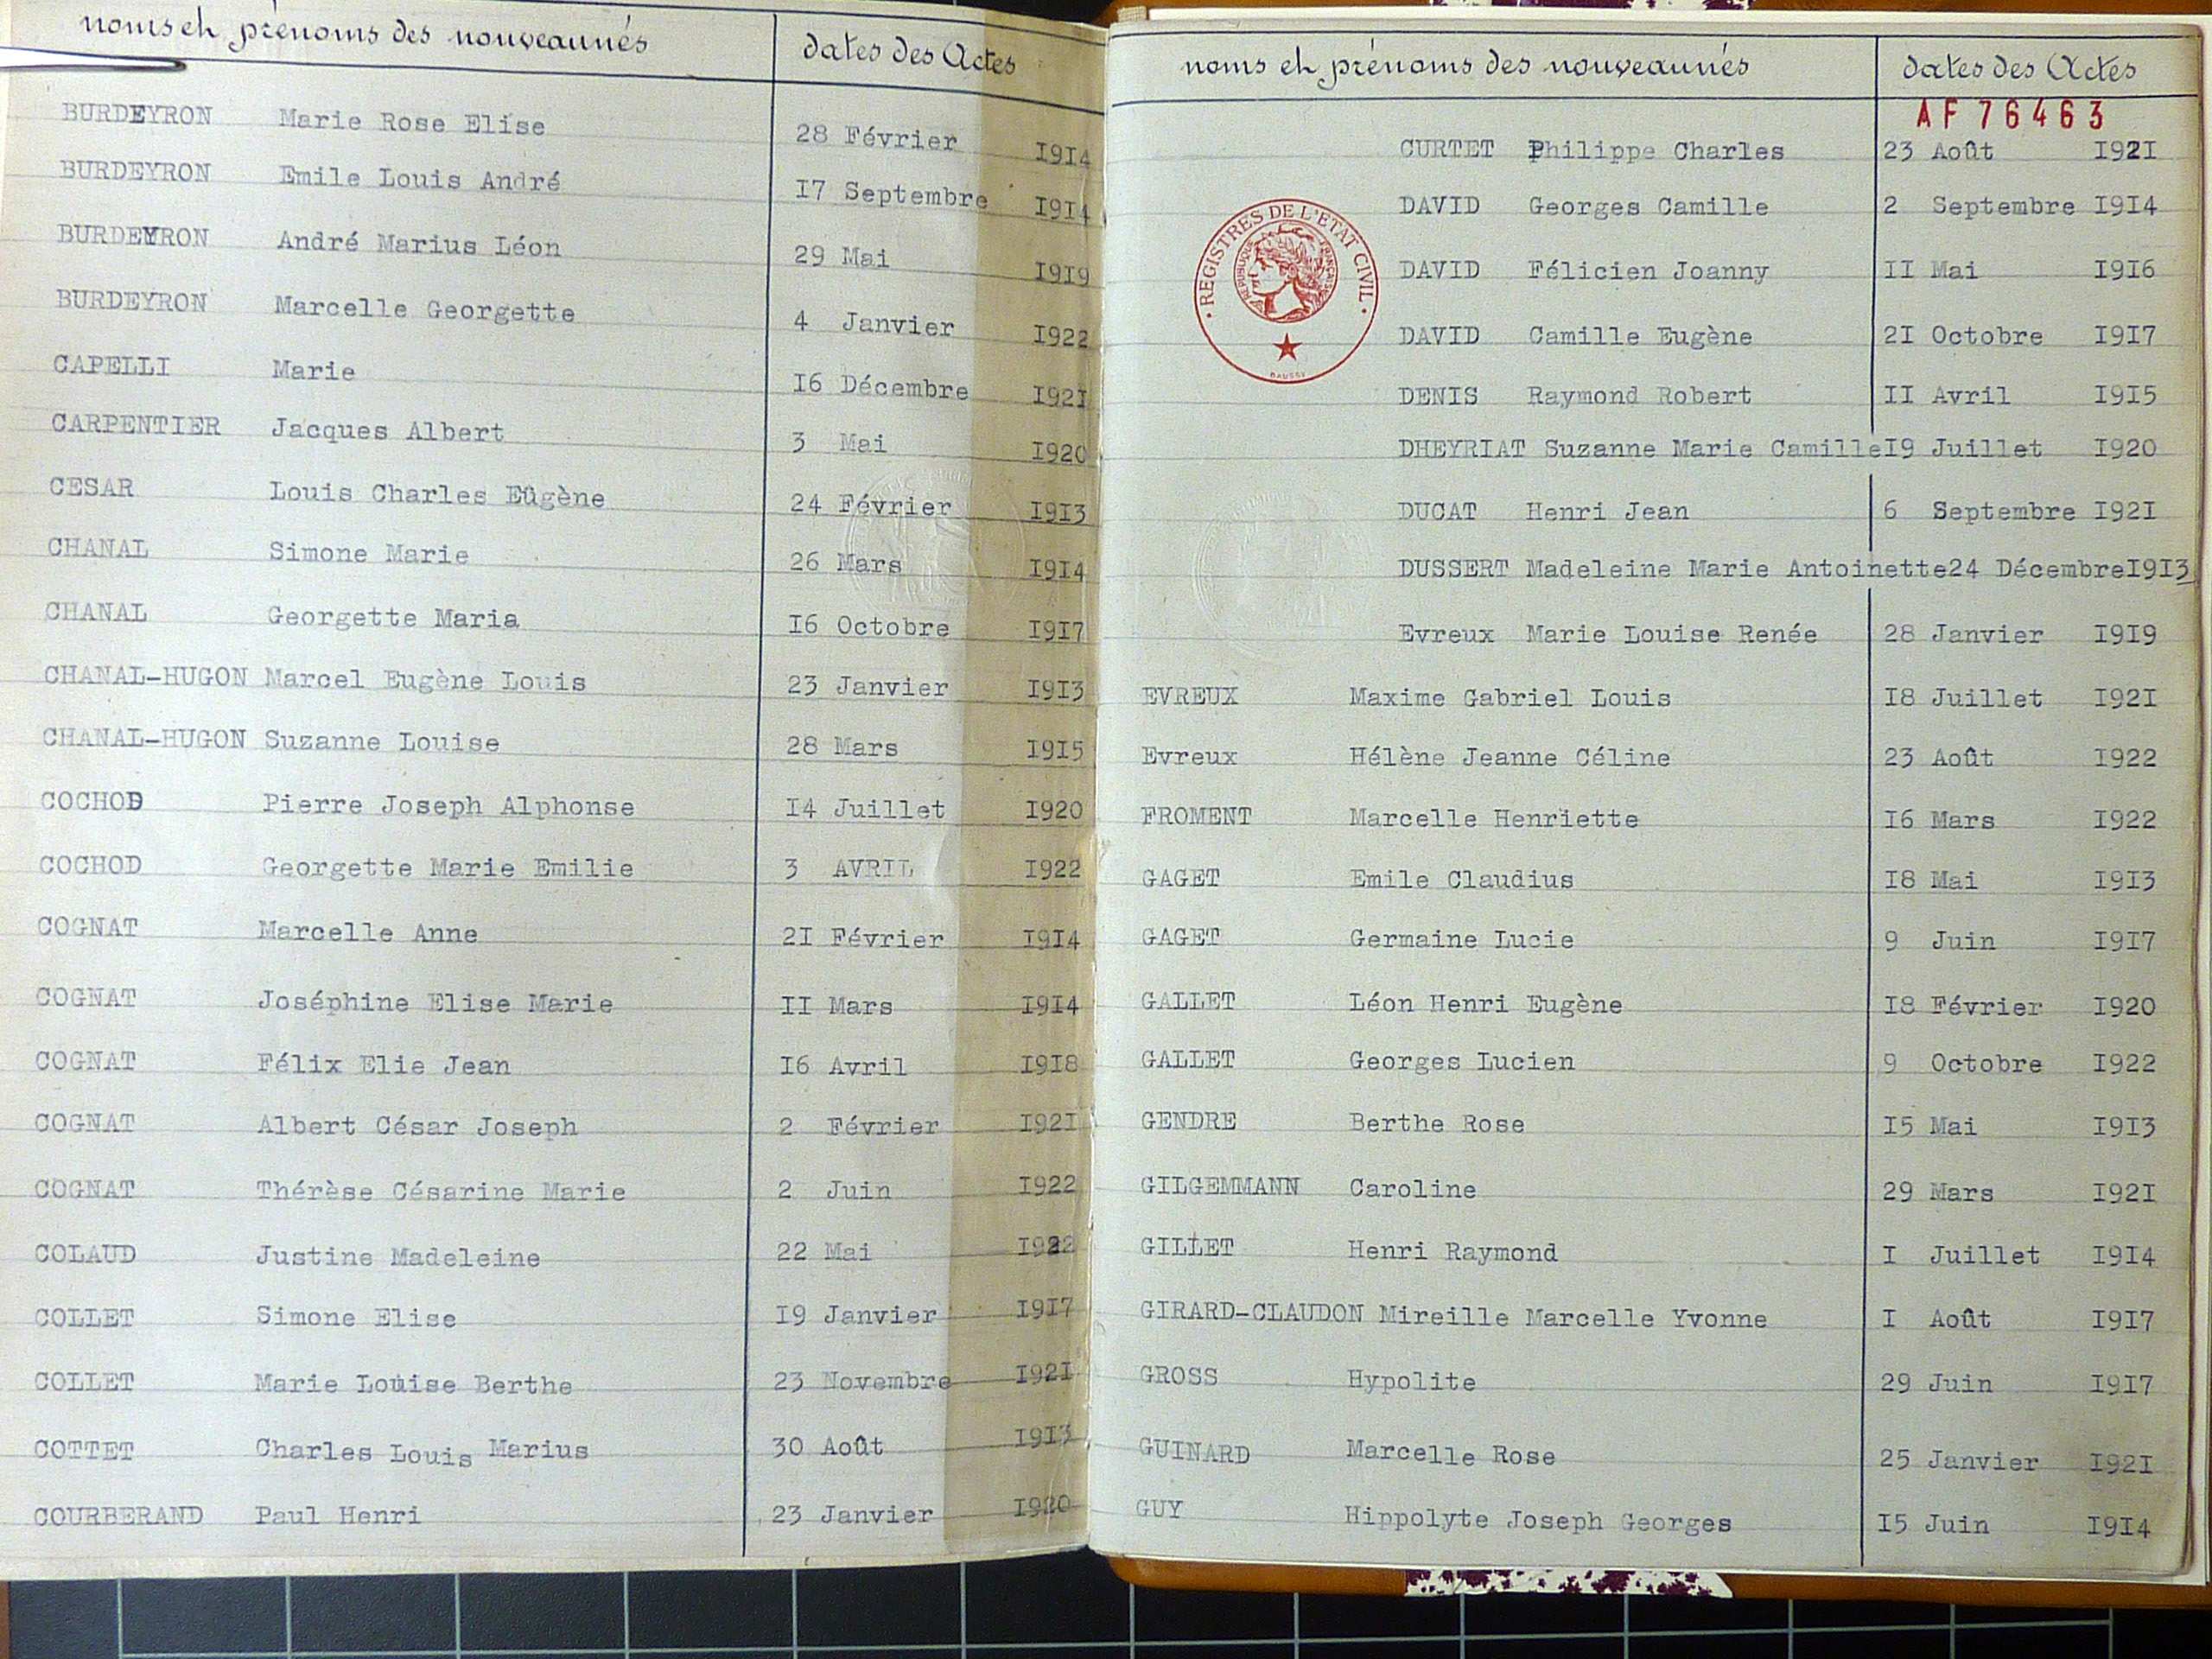 noms et prénoms des nouveaunés dates des Actes
BURDEYRON Marie Rose Elise 28 Février I9I4
BURDEYRON Emile Louis André I7 Septembre I9I4
BURDEYRON André Marius Léon 29 Mai I9I9
BURDEYRON Marcelle Georgette 4 Janvier I922
CAPELLI Marie I6 Décembre I92I
CARPENTIER Jacques Albert 3 Mai I920
CESAR Louis Charles Eûgène 24 Février I9I3
CHANAL Simone Marie 26 Mars I9I4
CHANAL Georgette Maria I6 Octobre I9I7
CHANAL-HUGON Marcel Eugène Louis 23 Janvier I9I3
CHANAL-HUGON Suzanne Louise 28 Mars I9I5
COCHOD Pierre Joseph Alphonse I4 Juillet I920
COCHOD Georgette Marie Emilie 3 AVRIL I922
COGNAT Marcelle Anne 2I Février I9I4
COGNAT Joséphine Elise Marie II Mars I9I4
COGNAT Félix Elie Jean I6 Avril I9I8
COGNAT Albert César Joseph 2 Février I92I
COGNAT Thérèse Césarine Marie 2 Juin I922
COLAUD Justine Madeleine 22 Mai I922
COLLET Simone Elise I9 Janvier I9I7
COLLET Marie Louise Berthe 23 Novembre I92I
COTTET Charles Louis Marius 30 Août I9I3
COURBERAND Paul Henri 23 Janvier I920
noms et prénoms des nouveaunés dates des Actes
AF 76463
CURTET Philippe Charles 23 Août I92I
DAVID Georges Camille 2 Septembre I9I4
REGISTRES DE L'ETAT CIVIL
REPUBLIQUE FRANÇAISE
DAVID Félicien Joanny II Mai I9I6
DAVID Camille Eugène 2I Octobre I9I7
DAUSSY
DENIS Raymond Robert II Avril I9I5
DHEYRIAT Suzanne Marie Camille I9 Juillet I920
DUCAT Henri Jean 6 Septembre I92I
DUSSERT Madeleine Marie Antoinette 24 Décembre I9I3
Evreux Marie Louise Renée 28 Janvier I9I9
EVREUX Maxime Gabriel Louis I8 Juillet I92I
Evreux Hélène Jeanne Céline 23 Août I922
FROMENT Marcelle Henriette I6 Mars I922
GAGET Emile Claudius I8 Mai I9I3
GAGET Germaine Lucie 9 Juin I9I7
GALLET Léon Henri Eugène I8 Février I920
GALLET Georges Lucien 9 Octobre I922
GENDRE Berthe Rose I5 Mai I9I3
GILGEMMANN Caroline 29 Mars I92I
GILLET Henri Raymond I Juillet I9I4
GIRARD-CLAUDON Mireille Marcelle Yvonne I Août I9I7
GROSS Hypolite 29 Juin I9I7
GUINARD Marcelle Rose 25 Janvier I92I
GUY Hippolyte Joseph Georges I5 Juin I9I4